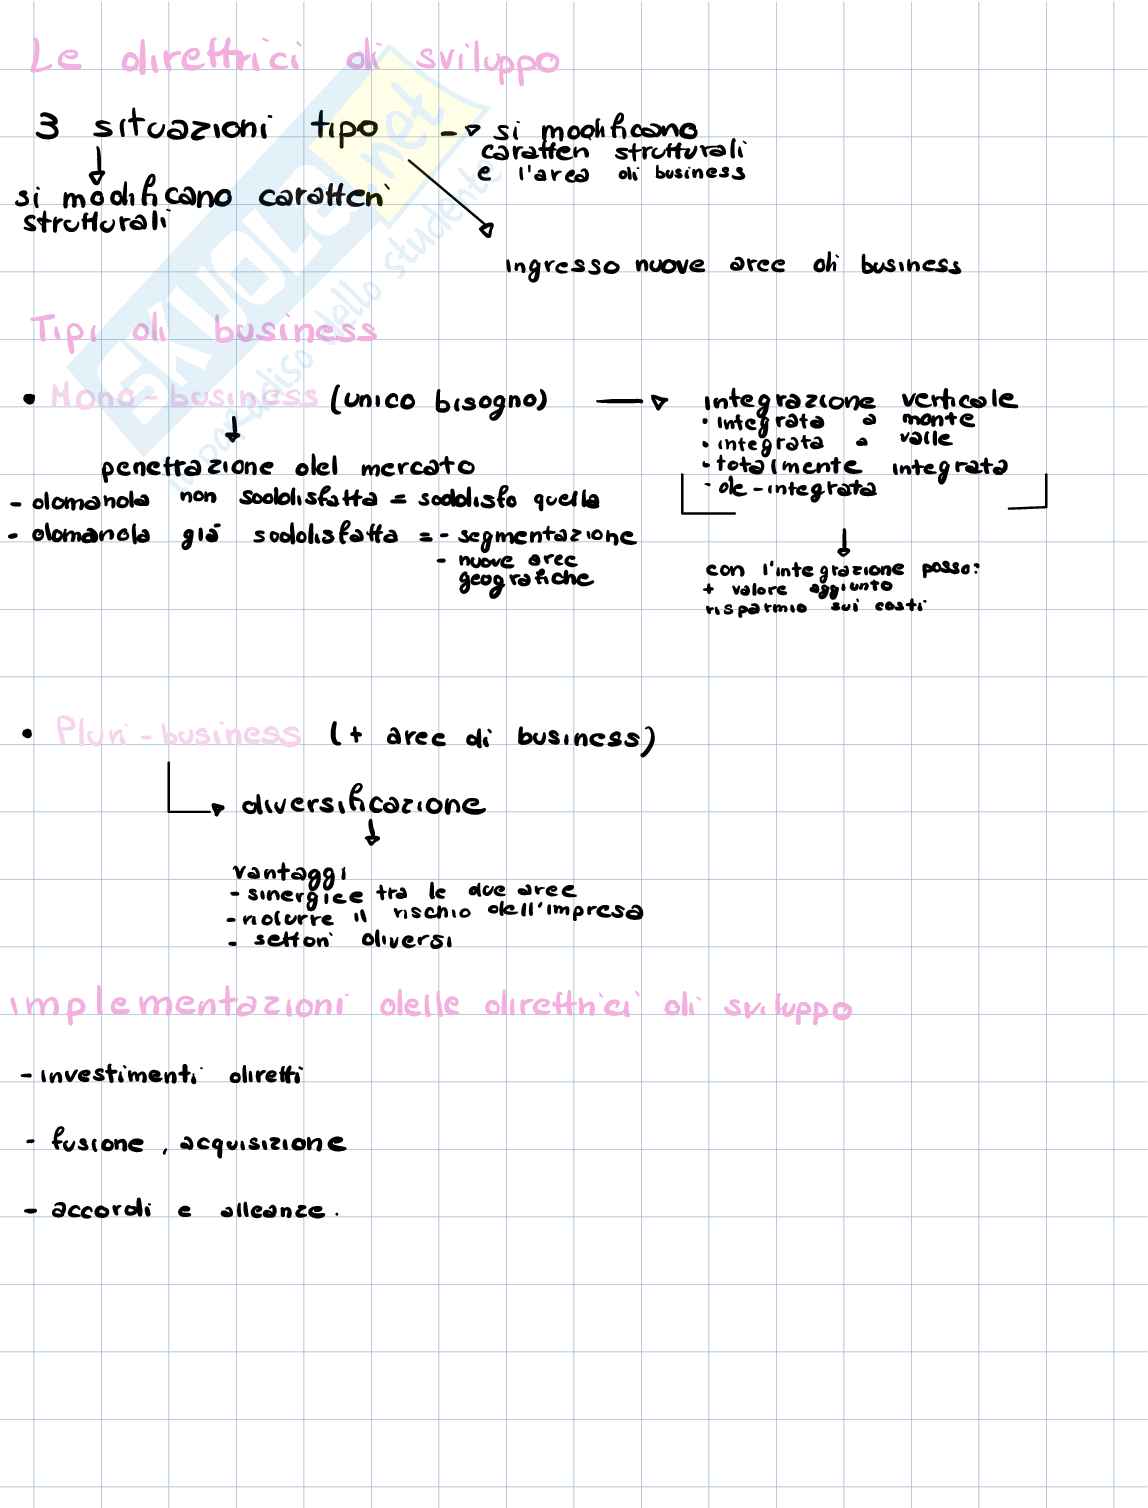 Le direttrici di sviluppo
3 situazioni tipo
si modificano
caratteri strutturali
e l'area di business
si modificano caratteri
strutturali
ingresso nuove aree di business
Tipi di business
• Mono-business (unico bisogno)
penetrazione del mercato
- domanda non soddisfatta = soddisfo quella
- domanda già soddisfatta = - segmentazione
- nuove aree
geografiche
integrazione verticale
• integrata a monte
• integrata a valle
• totalmente integrata
• de-integrata
con l'integrazione posso:
+ valore aggiunto
risparmio sui costi
• Pluri-business (+ aree di business)
diversificazione
vantaggi
- sinergice tra le due aree
- ridurre il rischio dell'impresa
- settori diversi
implementazioni delle direttrici di sviluppo
- investimenti diretti
- fusione, acquisizione
- accordi e alleanze.
SKUOLA.net
il paradiso dello studente